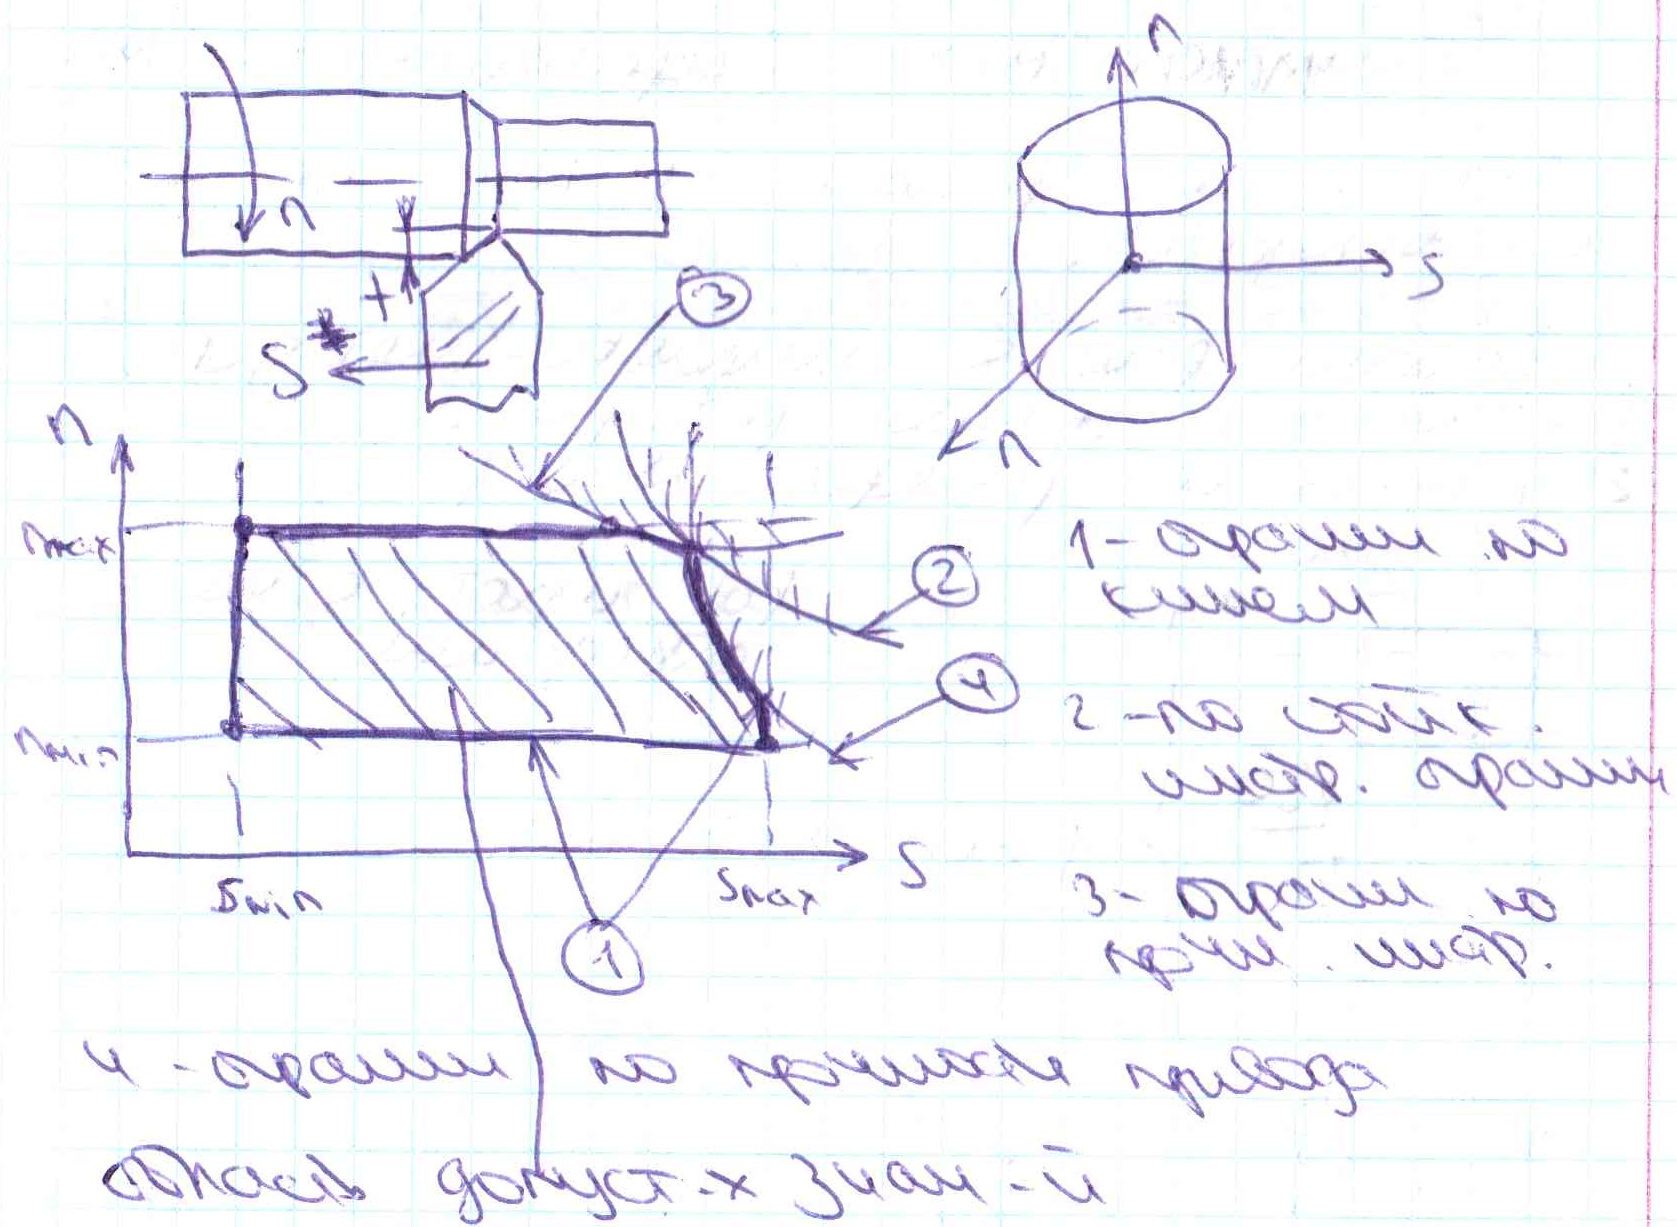 n
n
t
S*
3
S
n
n
n max
2
1 - огранич по
кинем
4
2 - по стойк.
инстр. огранич
n min
S
S min
S max
3 - огранич по
прочн. инстр.
1
4 - огранич по прочности привода
область допуст-х знач-й